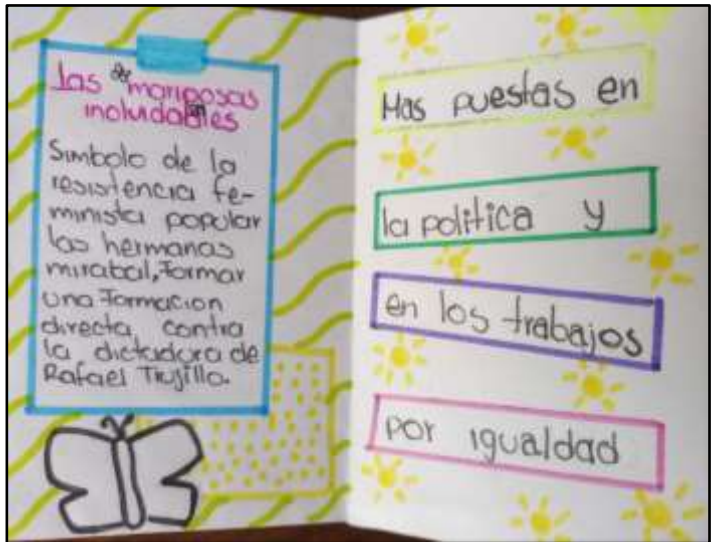 las mariposas
inolvidables
Simbolo de la
resistencia fe-
minista popular
las hermanas
mirabal, Formar
una Formacion
directa contra
la dictadura de
Rafael Trujillo.
Mas puestas en
la politica y
en los trabajos
por igualdad